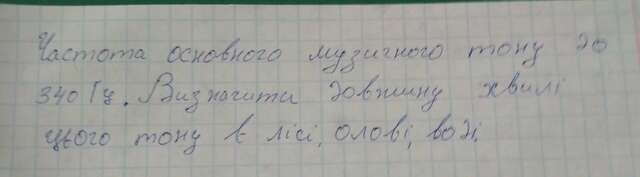 Частота основного музичного тону до
340 Гц. Визначити довжину хвилі
цього тону в лісі, олові, воді.